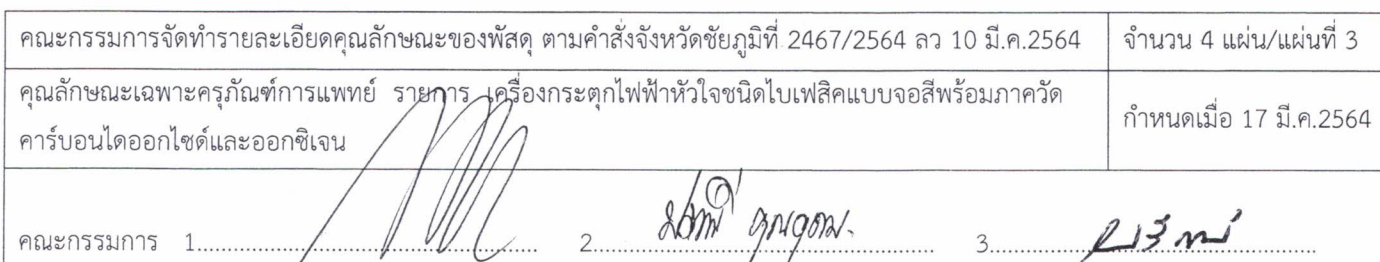 คณะกรรมการจัดทำรายละเอียดคุณลักษณะของพัสดุ ตามคำสั่งจังหวัดชัยภูมิที่ 2467/2564 ลว 10 มี.ค.2564
จำนวน 4 แผ่น/แผ่นที่ 3
คุณลักษณะเฉพาะครุภัณฑ์การแพทย์ รายการ เครื่องกระตุกไฟฟ้าหัวใจชนิดไบเฟสิคแบบจอสีพร้อมภาควัด
คาร์บอนไดออกไซด์และออกซิเจน
กำหนดเมื่อ 17 มี.ค.2564
คณะกรรมการ 1.................... 2.................... 3....................